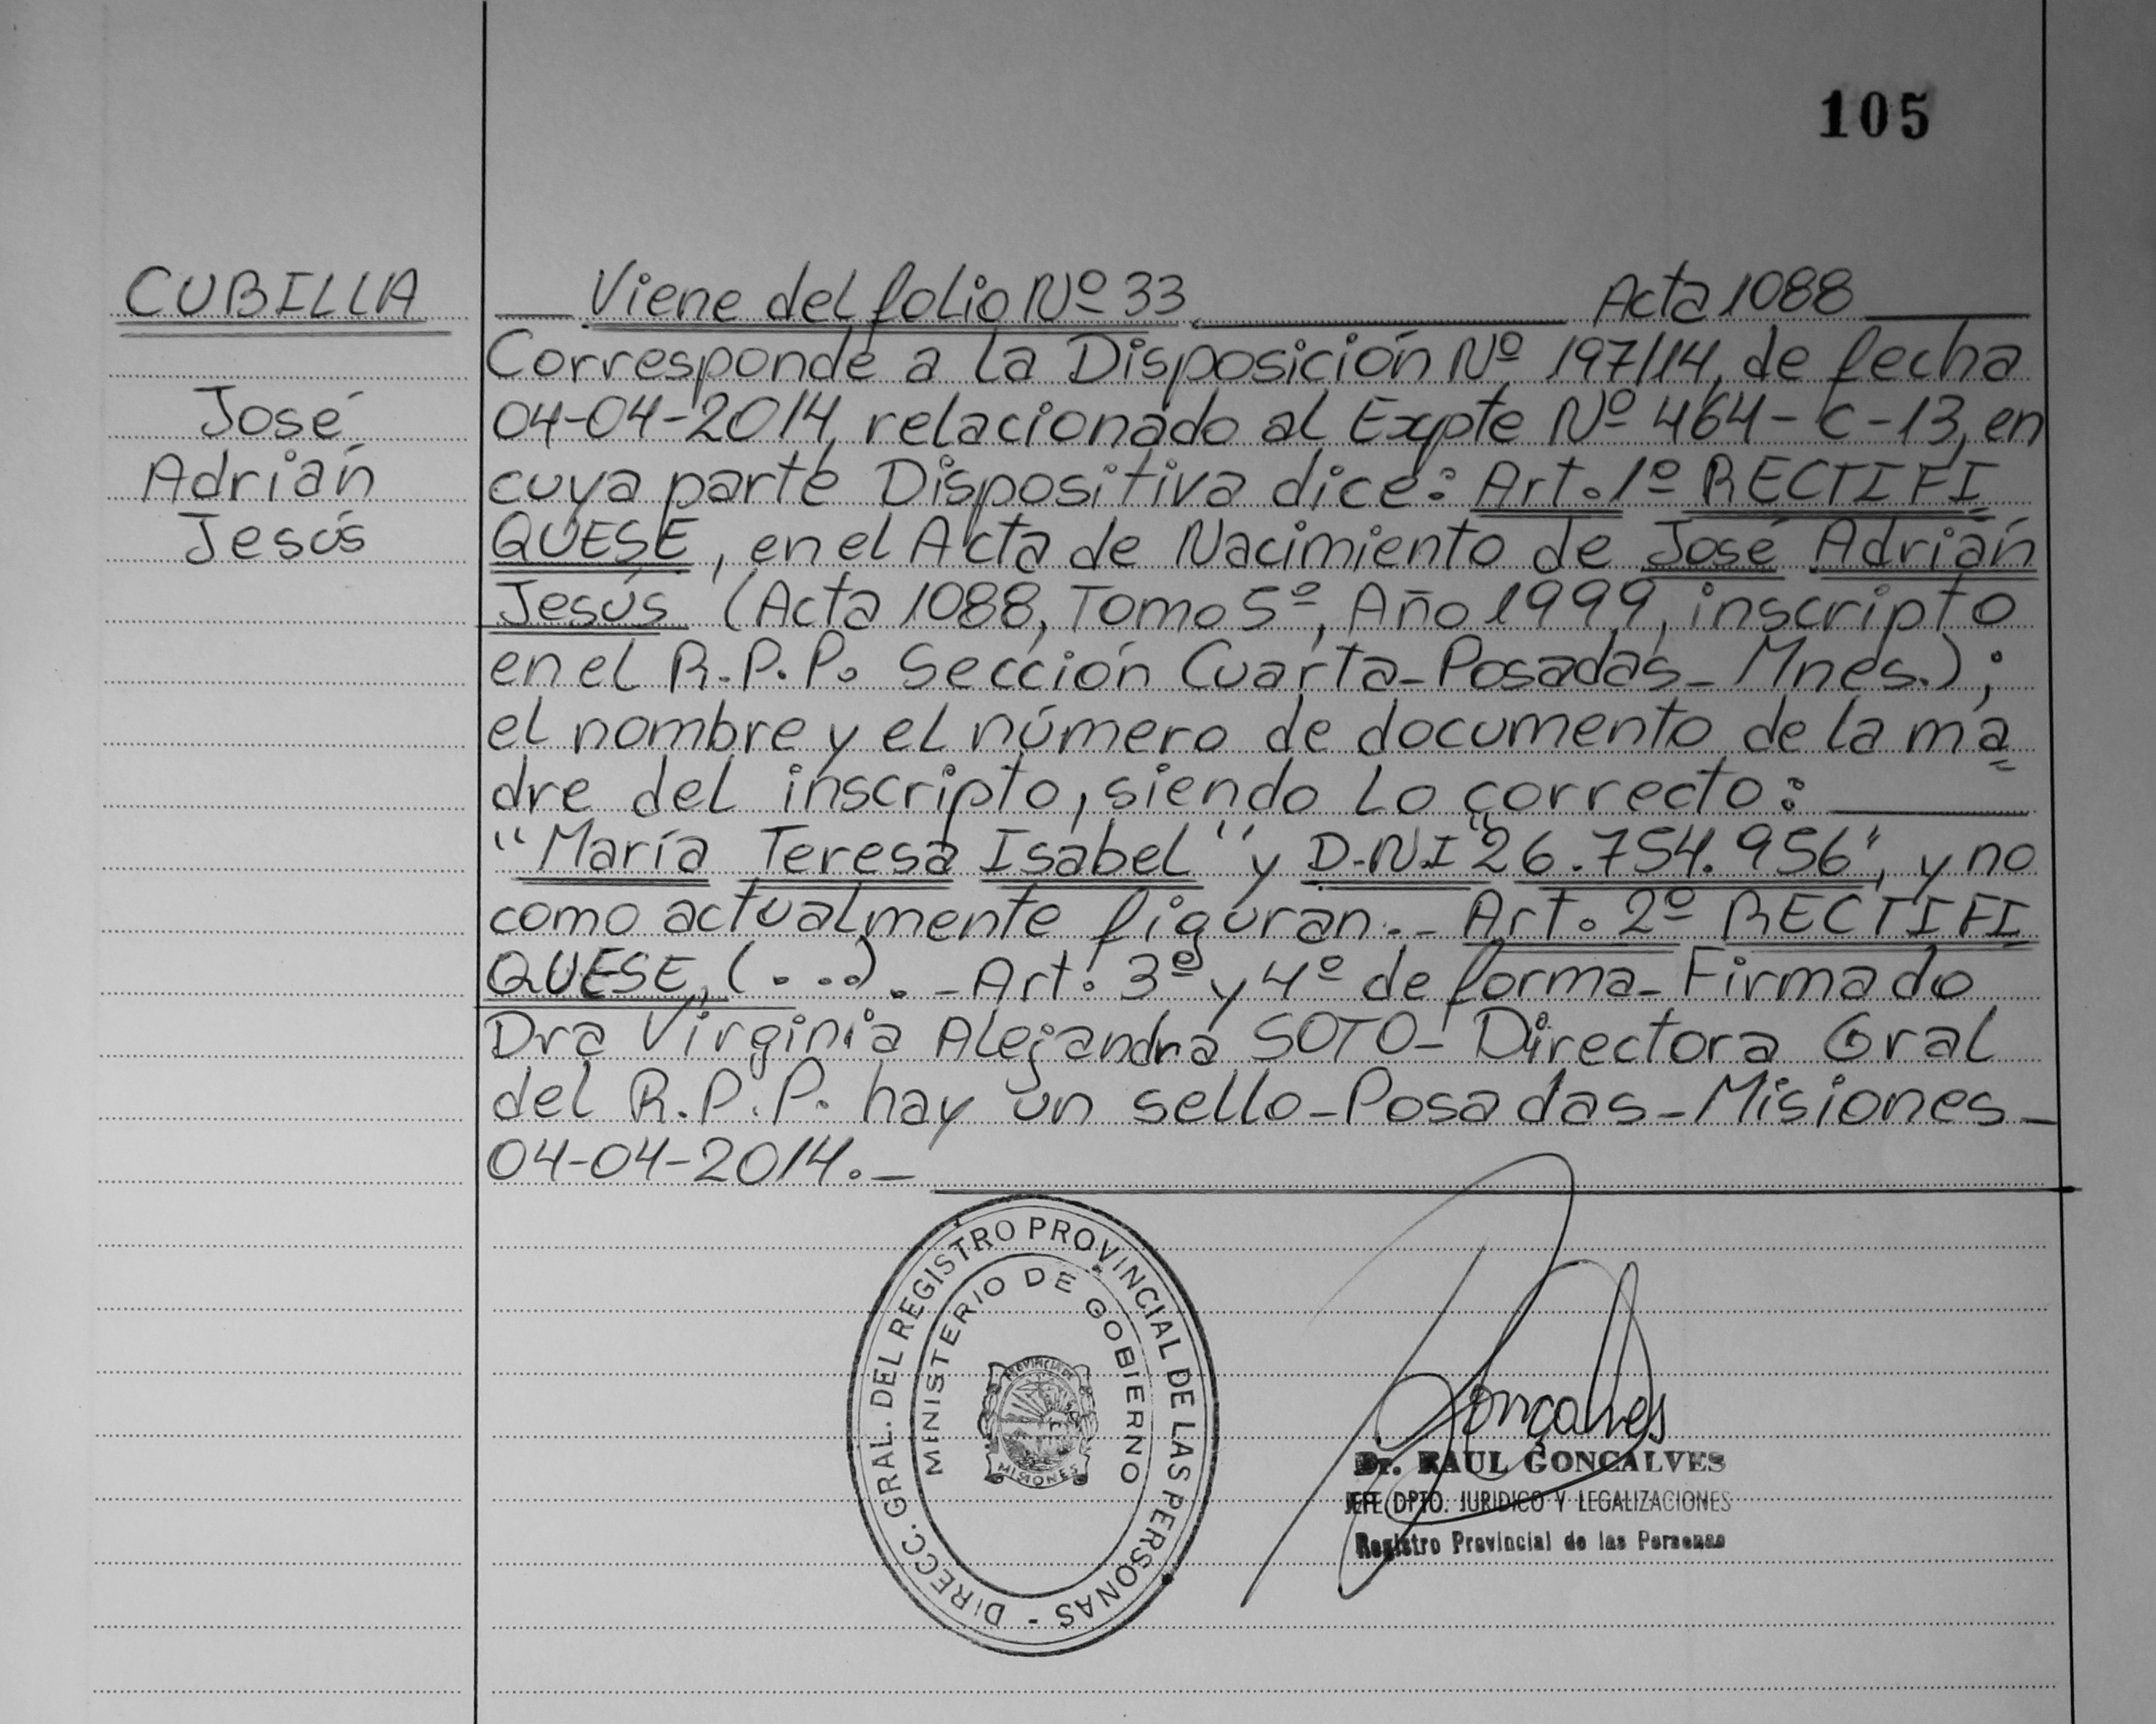 105
CUBILLA
José
Adrián
Jesús
Viene del folio Nº 33. Acta 1088
Corresponde a la Disposición Nº 197/14, de fecha
04-04-2014, relacionado al Expte Nº 464-C-13, en
cuya parte Dispositiva dice: Art. 1º RECTIFI
QUESE, en el Acta de Nacimiento de José Adrián
Jesús (Acta 1088, Tomo 5º, Año 1999, inscripto
en el R.P.P. Sección Cuarta-Posadas-Mnes.);
el nombre y el número de documento de la ma
dre del inscripto, siendo lo correcto:
"María Teresa Isabel" y D.N.I "26.754.956", y no
como actualmente figuran.- Art. 2º RECTIFI
QUESE, (...).- Art. 3º y 4º de forma-Firmado
Dra Virginia Alejandra SOTO-Directora Gral
del R.P.P. hay un sello-Posadas-Misiones-
04-04-2014.-
DIRECC. GRAL. DEL REGISTRO PROVINCIAL DE LAS PERSONAS -
MINISTERIO DE GOBIERNO
PROVINCIA DE
MISIONES
Gonçalves
Dr. RAUL GONCALVES
JEFE DPTO. JURIDICO Y LEGALIZACIONES
Registro Provincial de las Personas